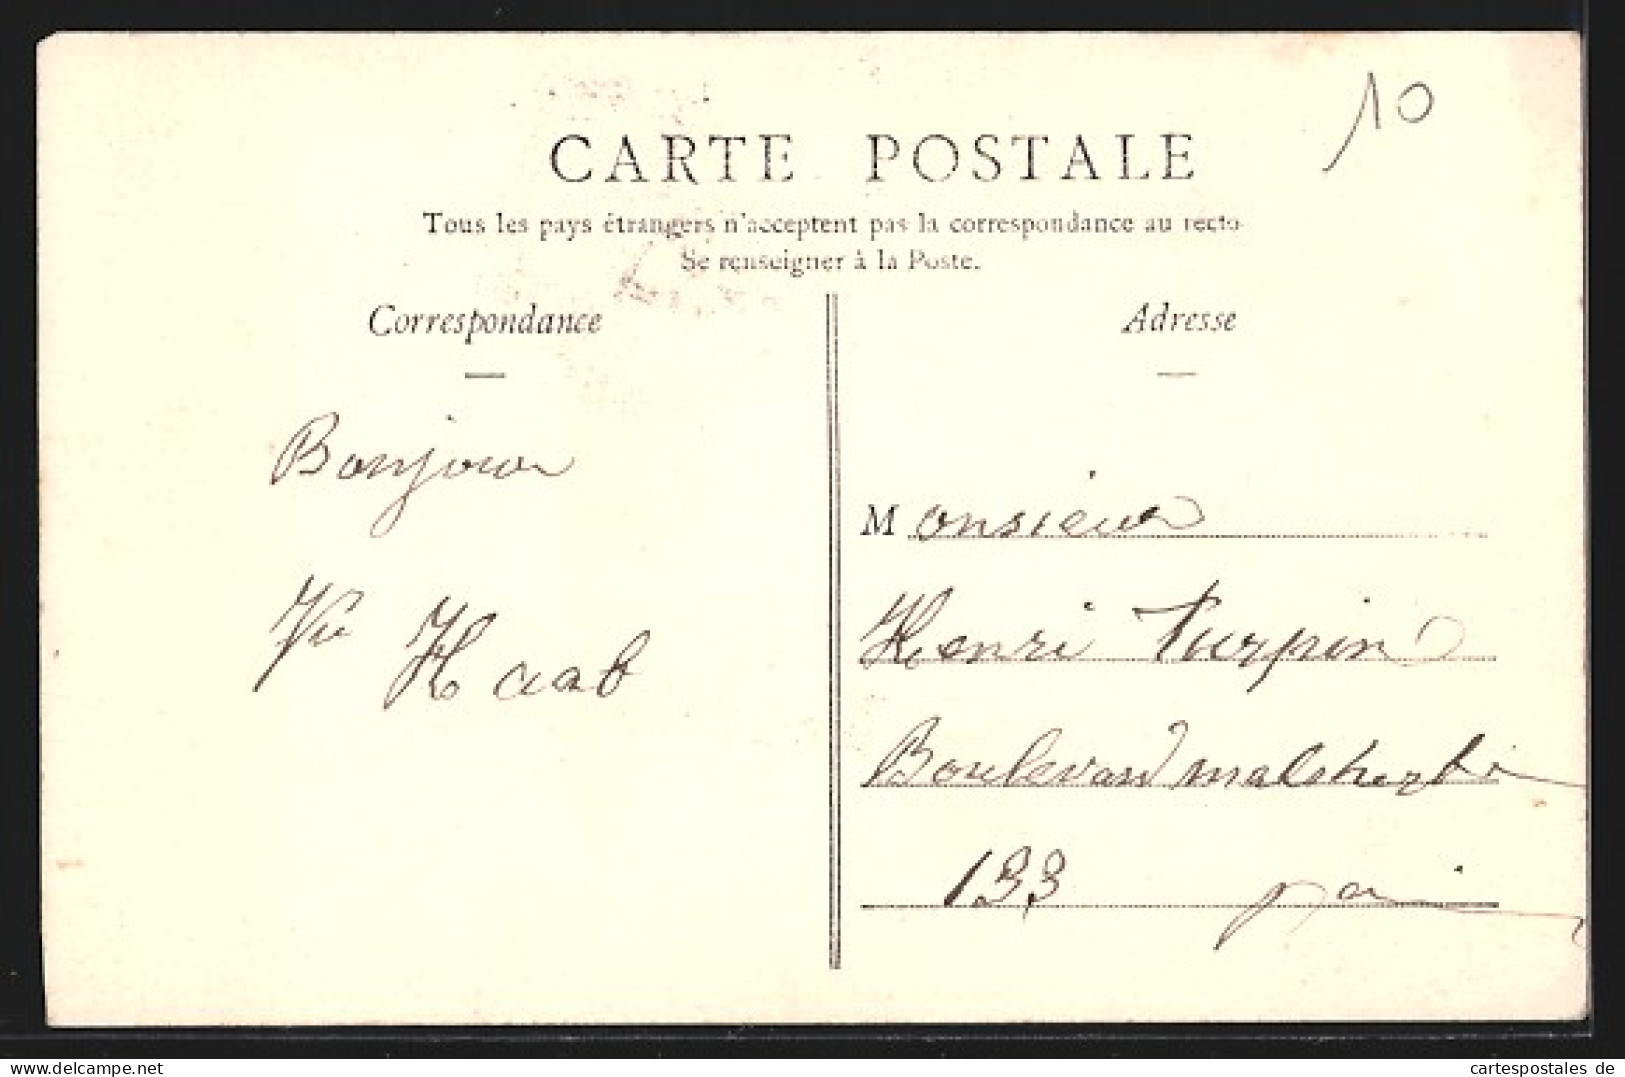 10
CARTE POSTALE
Tous les pays étrangers n'acceptent pas la correspondance au recto
Se renseigner à la Poste.
Correspondance
Adresse
Bonjour
Vve Haab
Monsieur
Henri Turpin
Boulevard malesherbe
133 paris
www.delcampe.net
cartespostales de